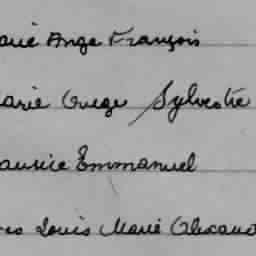 arie Ange François
arie Ouege Sylvestre
aurice Emmanuel
es Louis Marie Alexand